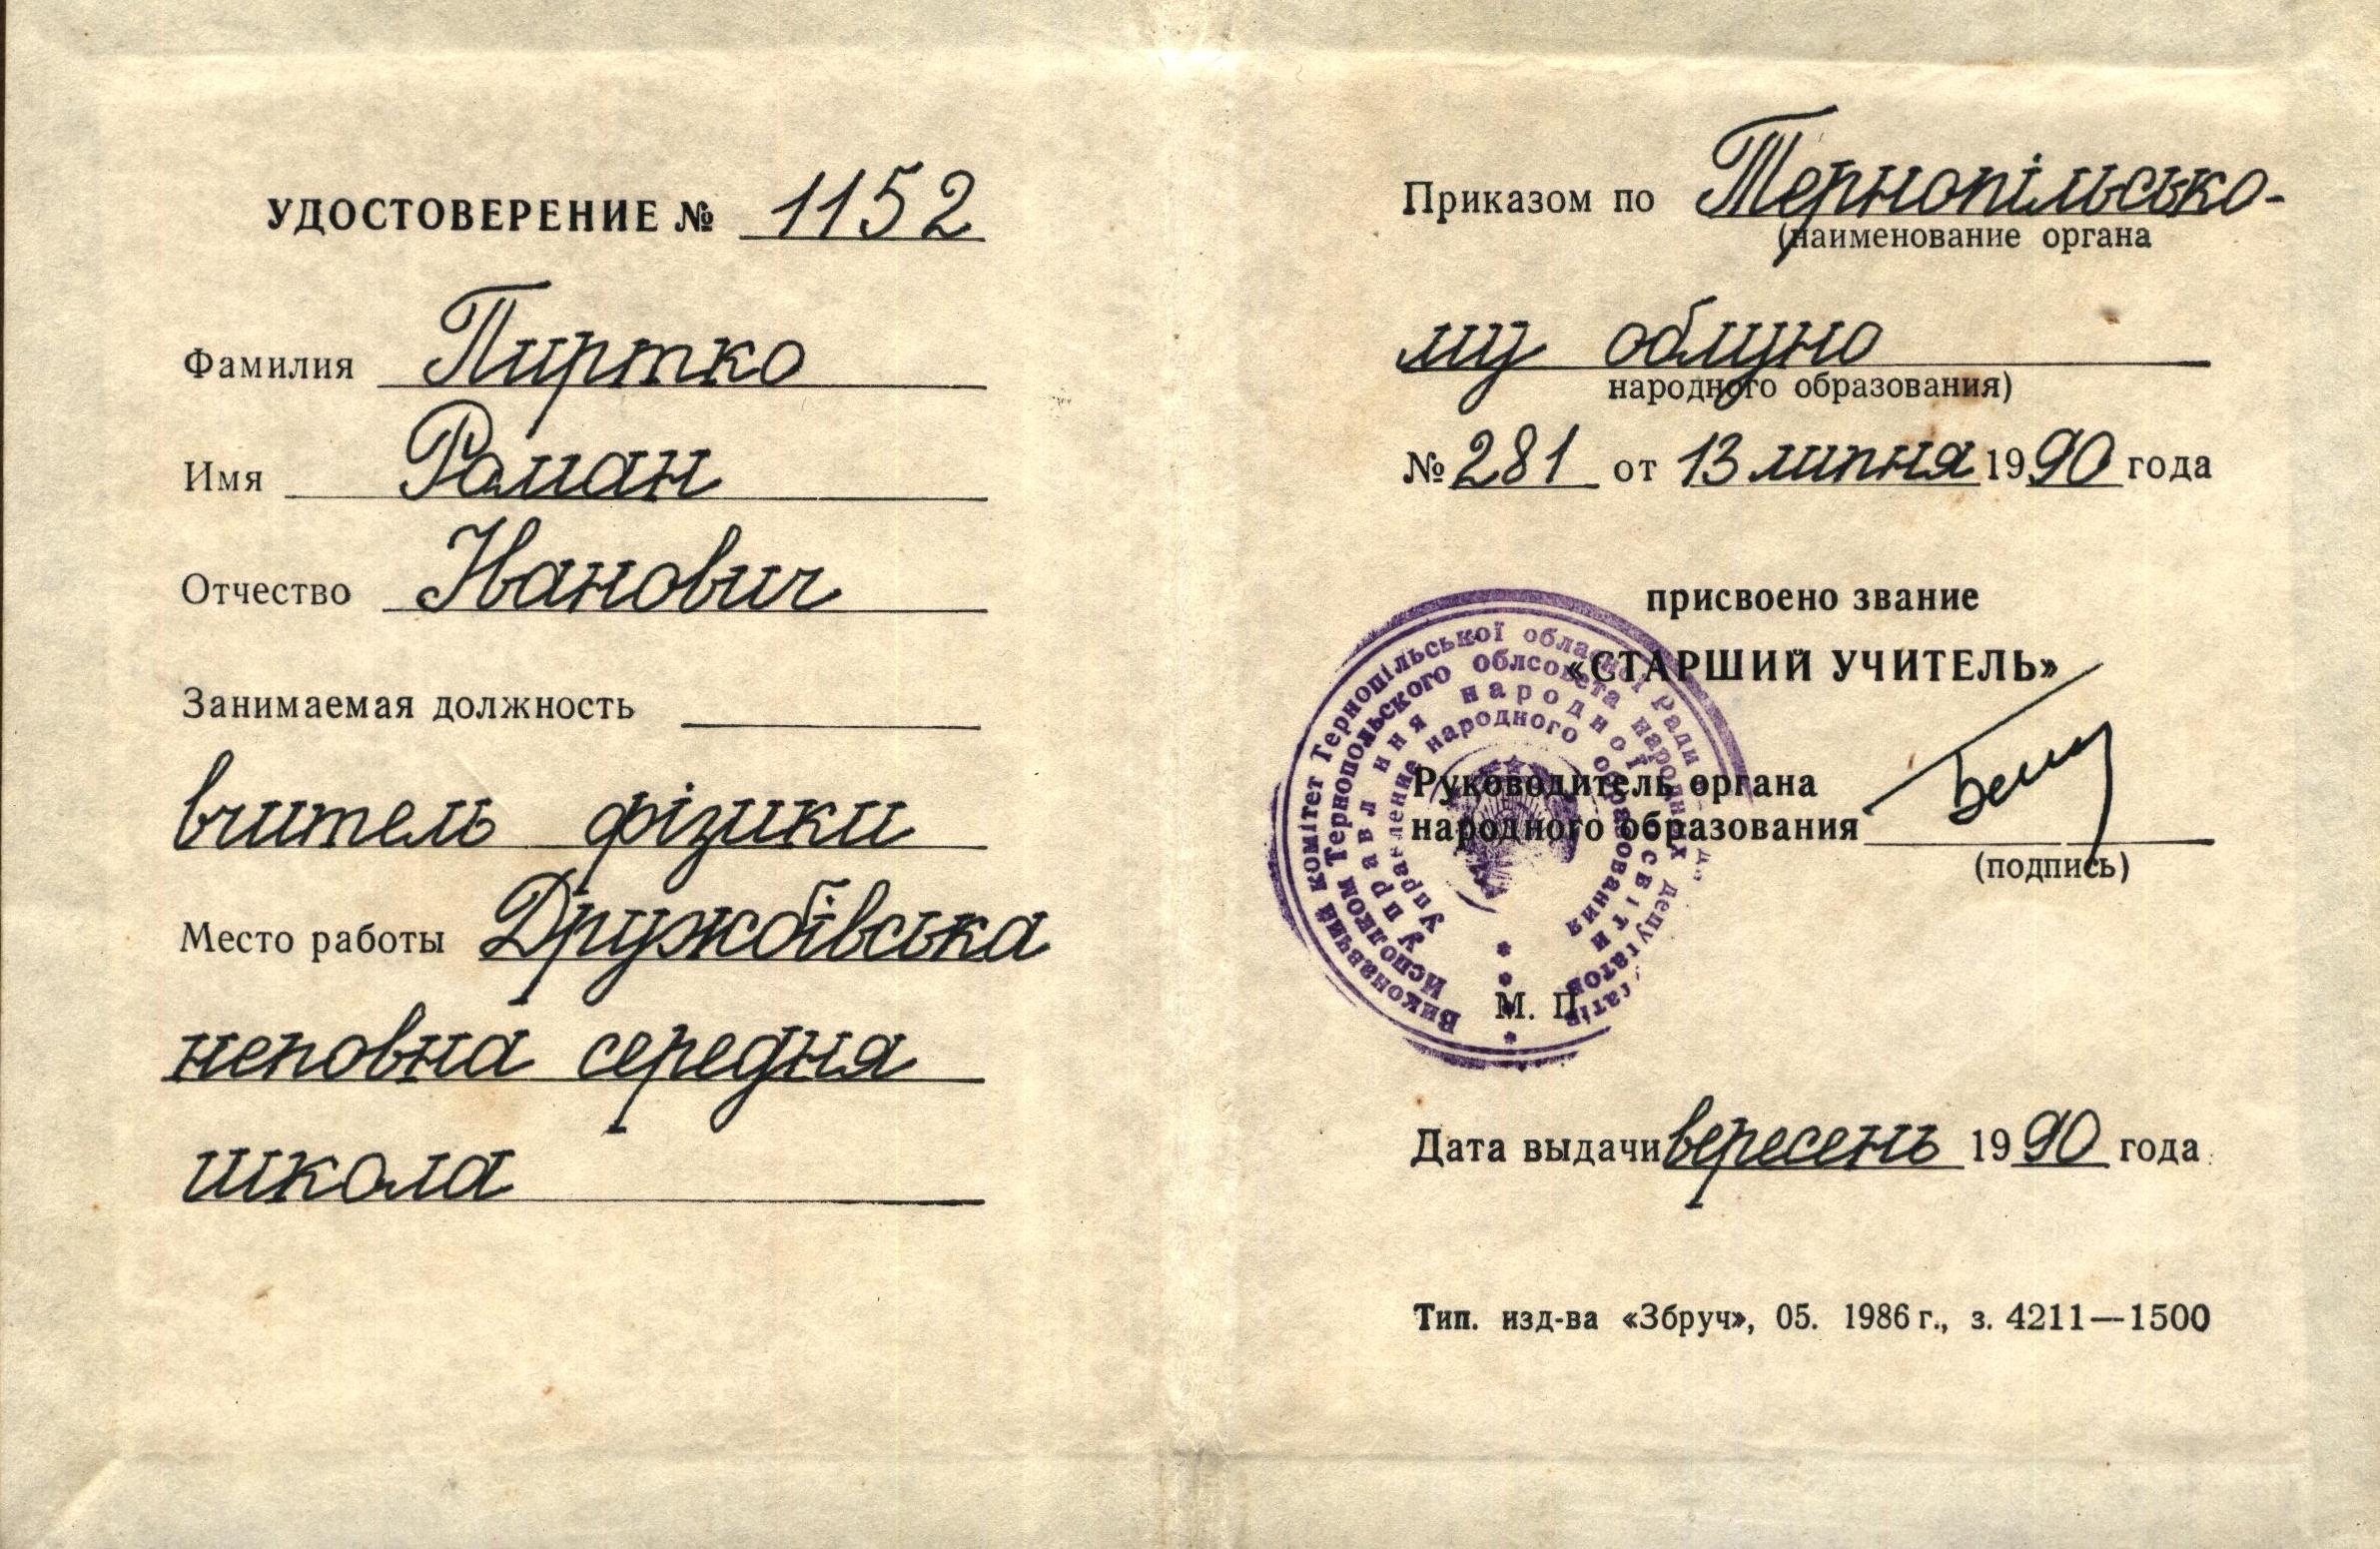 УДОСТОВЕРЕНИЕ № 1152
Фамилия Пиртко
Имя Роман
Отчество Іванович
Занимаемая должность
вчитель фізики
Место работы Дружбівська
неповна середня
школа
Приказом по Тернопільсько-
(наименование органа
му облуно
народного образования)
№ 281 от 13 липня 1990 года
присвоено звание
«СТАРШИЙ УЧИТЕЛЬ»
Руководитель органа
народного образования
(подпись)
М. П.
Виконавчий комітет Тернопільської обласної ради
Исполком Тернопольского облсовета народных депутатов
Управління народної освіти
Управление народного образования
Дата выдачи вересень 1990 года
Тип. изд-ва «Збруч», 05. 1986 г., з. 4211—1500